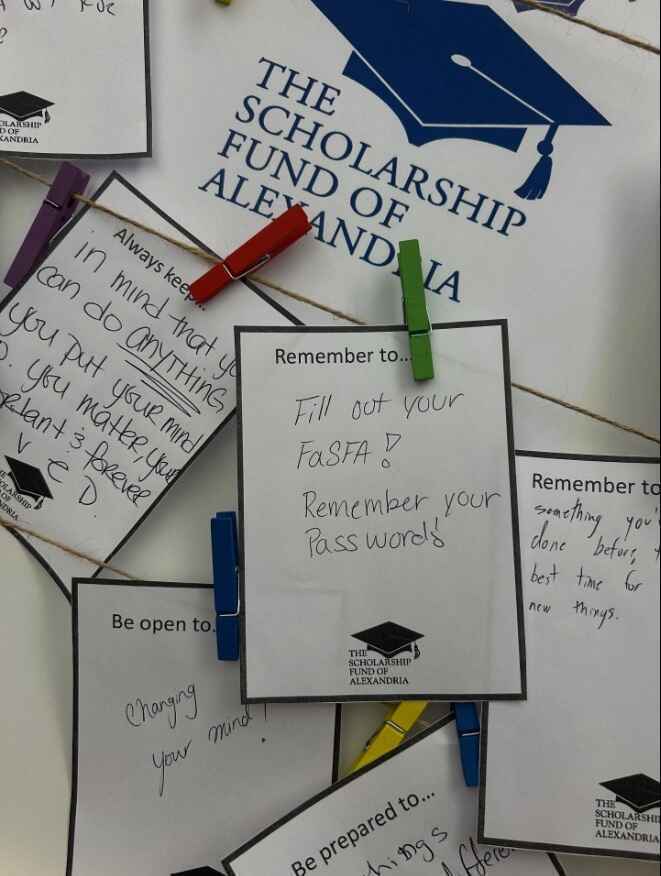 THE
SCHOLARSHIP
FUND OF
ALEXANDRIA
OLARSHIP
D OF
XANDRIA
Always keep...
in mind that yo
can do anything
you put your mind
O. you matter, your
& forever
V E D
Remember to...
Fill out your
FaSFA!
Remember your
Passwords!
THE
SCHOLARSHIP
FUND OF
ALEXANDRIA
Remember to
something you'
done before,
best time for
new things.
THE
SCHOLARSHIP
FUND OF
ALEXANDRIA
Be open to.
Changing
your mind!
Be prepared to...